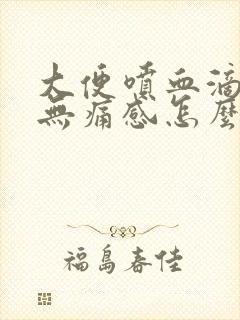 大便噴血滴
無痛感怎麼
福島春佳